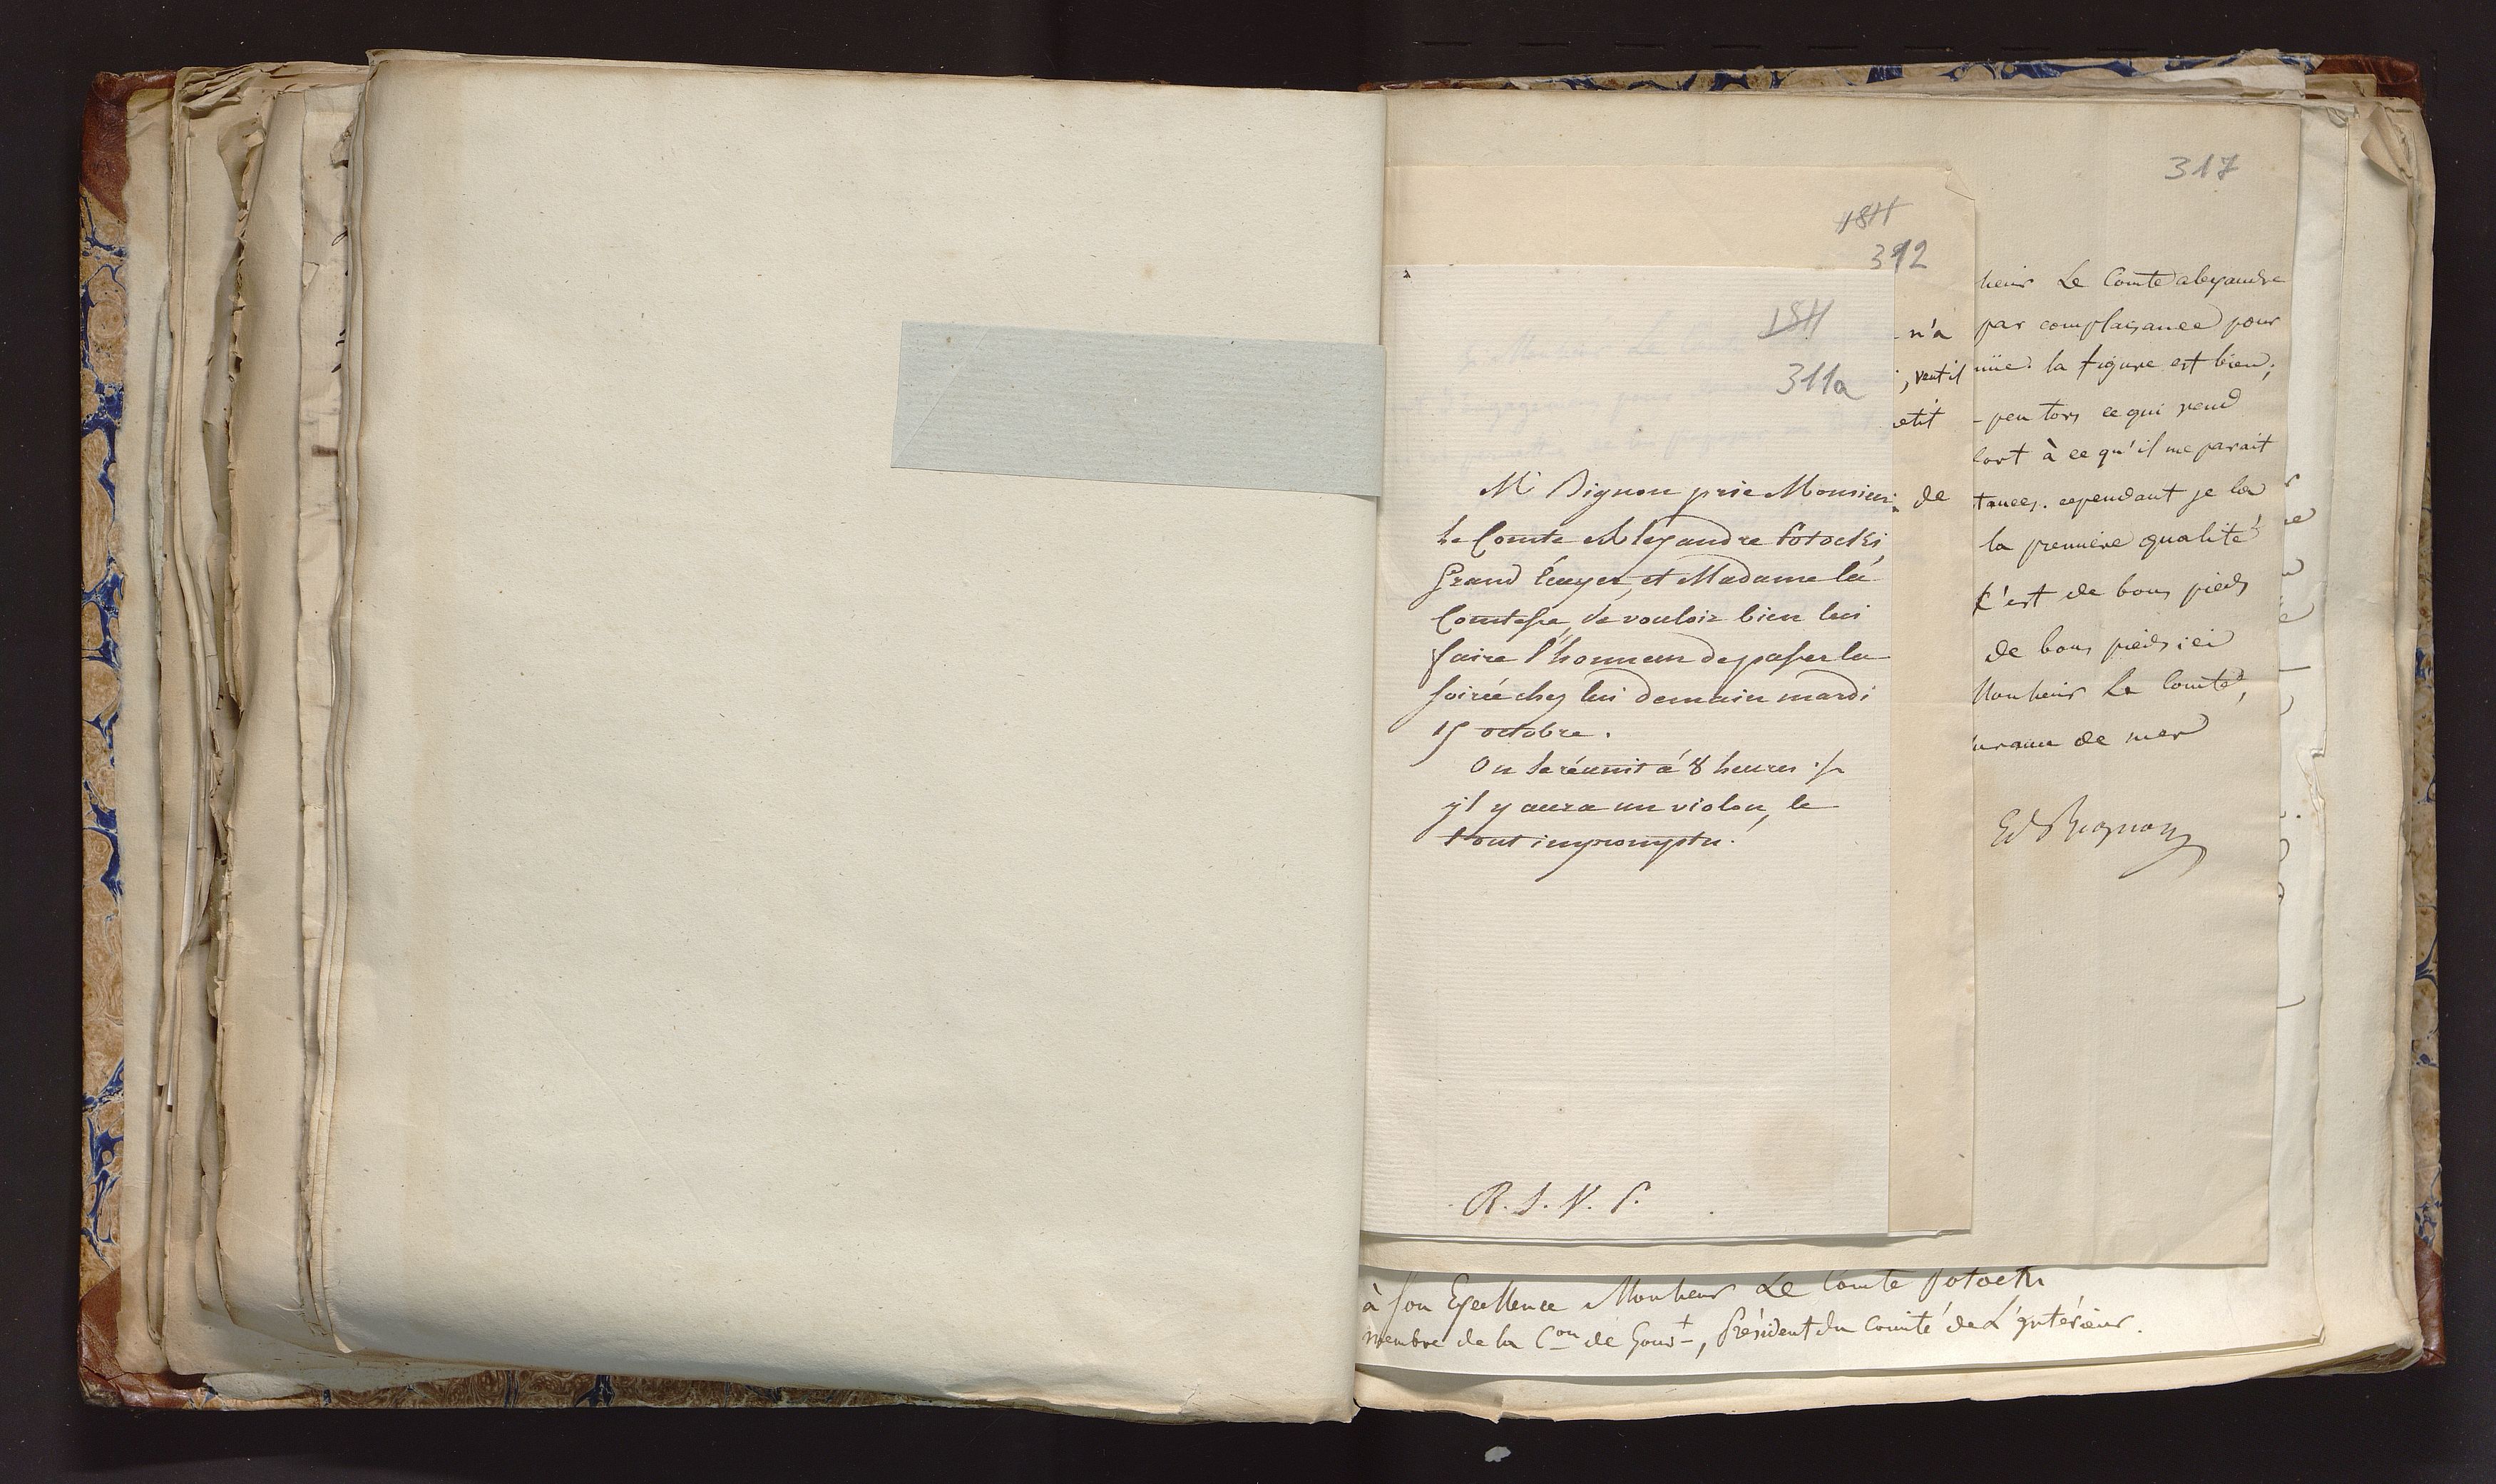 317
312
311a
Mr Bignon prie Monsieur
Le Comte Alexandre Potocki,
Grand Écuyer, et Madame la
Comtesse, de vouloir bien lui
faire l'honneur de passer la
soirée chez lui demain mardi
15 octobre.
On se réunit à 8 heures
y'l y aura un violon, le
tout impromptu.
R. S. V. P.
n'a
, veut il
etit
de
Le Comte alexandre
par complaisance pour
nüe. la figure est bien,
peu tors ce qui rend
à ce qu'il me parait
tances. cependant je la
la première qualité
C'est de bons pieds
de bons pieds ici
Monsieur Le Comte,
de mer
Ed Bignon
à Son Excellence Monsieur Le Comte Potocki
membre de la Con de Gouvt, Président du Comité de L'intérieur.